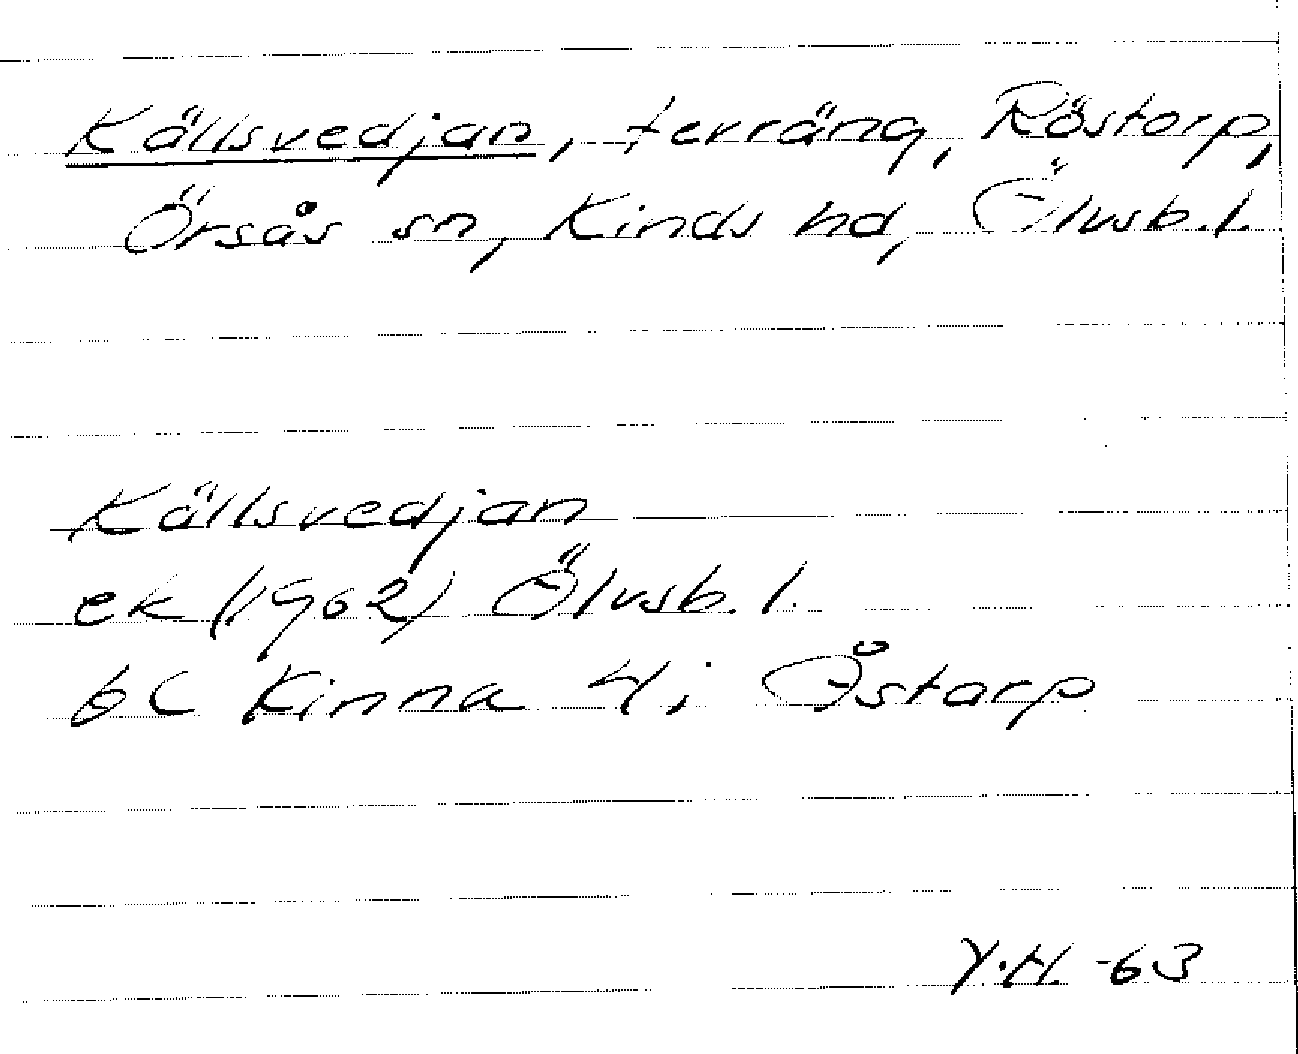 Källsvedjan, terräng, Röstorp,
Örsås sn, Kinds hd, Älvsb. l.
Källsvedjan
ek (1962) Älvsb. l.
6C Kinna 4i Åstarp
Y.H. -63